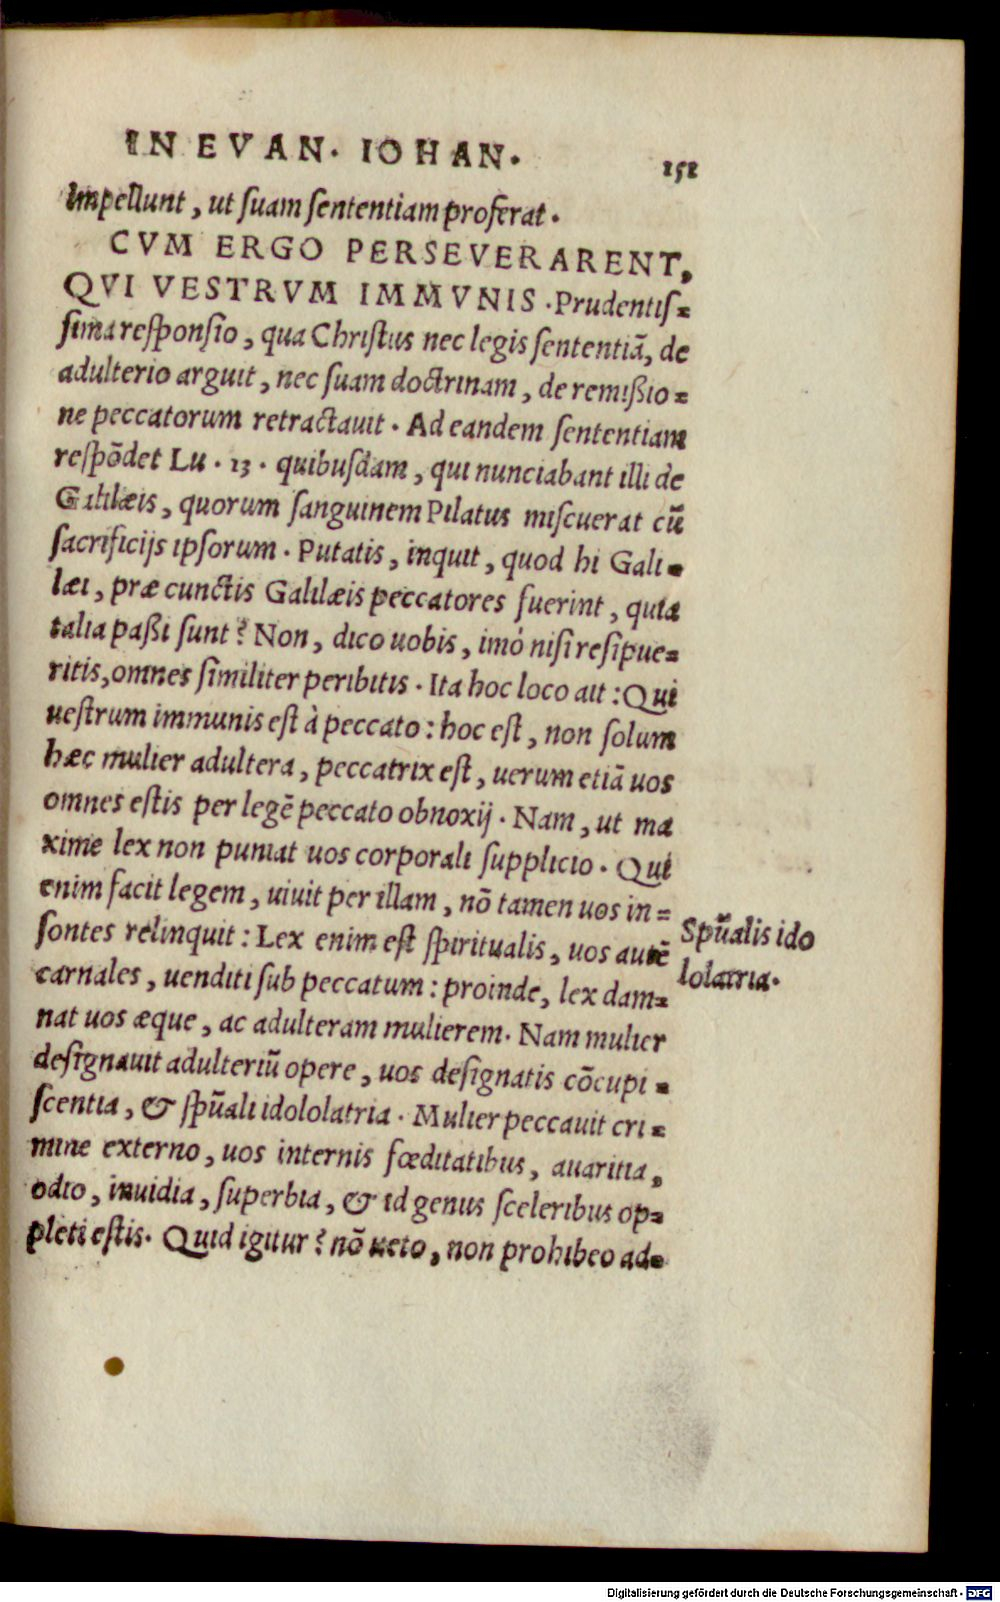 IN EVAN. IOHAN.
151
Impellunt, ut suam sententiam proferat.
CVM ERGO PERSEVERARENT,
QVI VESTRVM IMMVNIS. Prudentiſ=
ſima reſponſio, qua Chriſtus nec legis ſententiã, de
adulterio arguit, nec ſuam doctrinam, de remiſsio=
ne peccatorum retractauit. Ad eandem ſententiam
reſpõdet Lu. 13. quibuſdam, qui nunciabant illi de
Galilæis, quorum ſanguinem Pilatus miſcuerat cũ
ſacrificijs ipſorum. Putatis, inquit, quod hi Gali=
læi, præ cunctis Galilæis peccatores fuerint, quia
talia paßi ſunt? Non, dico uobis, imò niſi reſipue=
ritis, omnes ſimiliter peribitis. Ita hoc loco ait: Qui
ueſtrum immunis eſt à peccato: hoc eſt, non ſolum
hæc mulier adultera, peccatrix eſt, uerum etiã uos
omnes eſtis per legẽ peccato obnoxij. Nam, ut ma
xime lex non puniat uos corporali ſupplicio. Qui
enim facit legem, uiuit per illam, nõ tamen uos in=
ſontes relinquit: Lex enim eſt ſpiritualis, uos autẽ
carnales, uenditi ſub peccatum: proinde, lex dam=
nat uos æque, ac adulteram mulierem. Nam mulier
deſignauit adulteriũ opere, uos deſignatis cõcupi=
ſcentia, & ſpũali idololatria. Mulier peccauit cri=
mine externo, uos internis fœditatibus, auaritia,
odio, inuidia, ſuperbia, & id genus ſceleribus op=
pleti eſtis. Quid igitur? nõ ueto, non prohibeo ad=
Spũalis ido
lolatria.
Digitalisierung gefördert durch die Deutsche Forschungsgemeinschaft - DFG